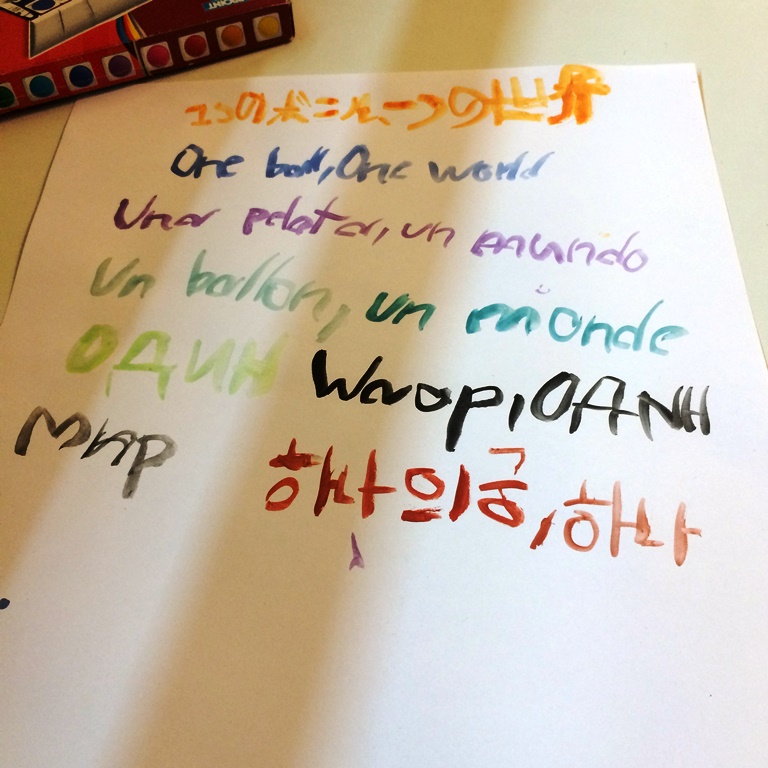 1つのボール一つの世界
One ball, One world
Una pelota, un mundo
Un ballon, un monde
ОДИН Шаор, ОДИН
мир
하나의 공, 하나